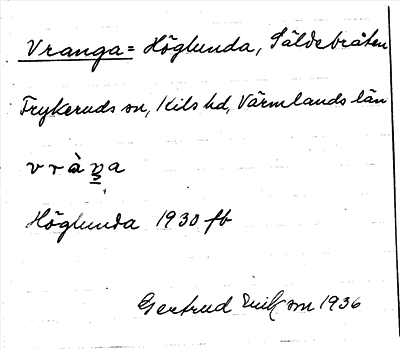 Vranga= Höglunda, Säldebråten
Frykeruds sn, Kils hd, Värmlands län
vràṉa
Höglunda 1930 fb
Gertrud Erikson 1936